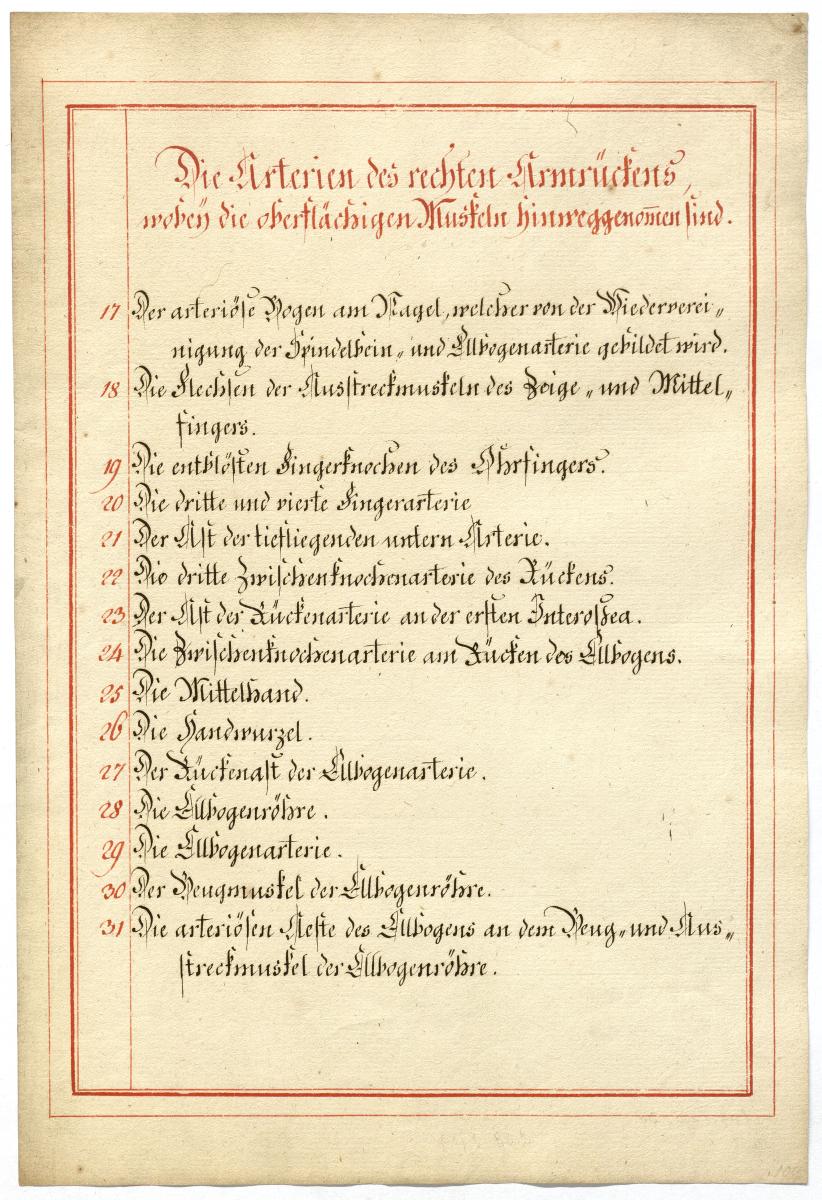 Die Arterien des rechten Armrückens,
wobey die oberflächigen Muskeln hinweggenom̅en sind.
17 Der arteriöse Bogen am Nagel, welcher von der Wiederverei„
nigung der Spindelbein„ und Ellbogenarterie gebildet wird.
18 Die Flechsen der Ausstreckmuskeln des Zeige „ und Mittel„
fingers.
19 Die entblösten Fingerknochen des Ohrfingers.
20 Die dritte und vierte Fingerarterie
21 Der Ast der tiefliegenden untern Arterie.
22 Die dritte Zwischenknochenarterie des Rückens.
23 Der Ast der Rückenarterie an der ersten Interossea.
24 Die Zwischenknochenarterie am Rücken des Ellbogens.
25 Die Mittelhand.
26 Die Handwurzel.
27 Der Rückenast der Ellbogenarterie.
28 Die Ellbogenröhre.
29 Die Ellbogenarterie.
30 Der Beugmuskel der Ellbogenröhre.
31 Die arteriösen Aeste des Ellbogens an dem Beug„ und Aus„
streckmuskel der Ellbogenröhre.